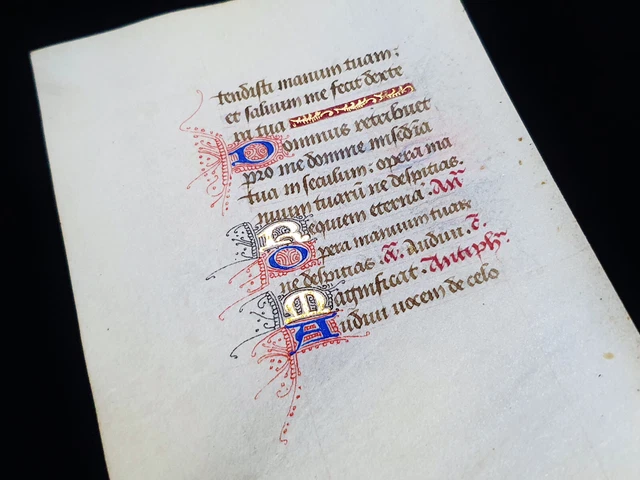 tendisti manum tuam:
et saluum me fecit dexte
ra tua
Dominus retribuet
pro me domine misc̄dia
tua in seculum: opera ma
nuum tuarū ne despicias. An̄
Requiem eterna. A
Opera manuum tuarx
ne despicias. v̄. Audiui. c̄
Magnificat. Antiph̄
Audiui uocem de celo